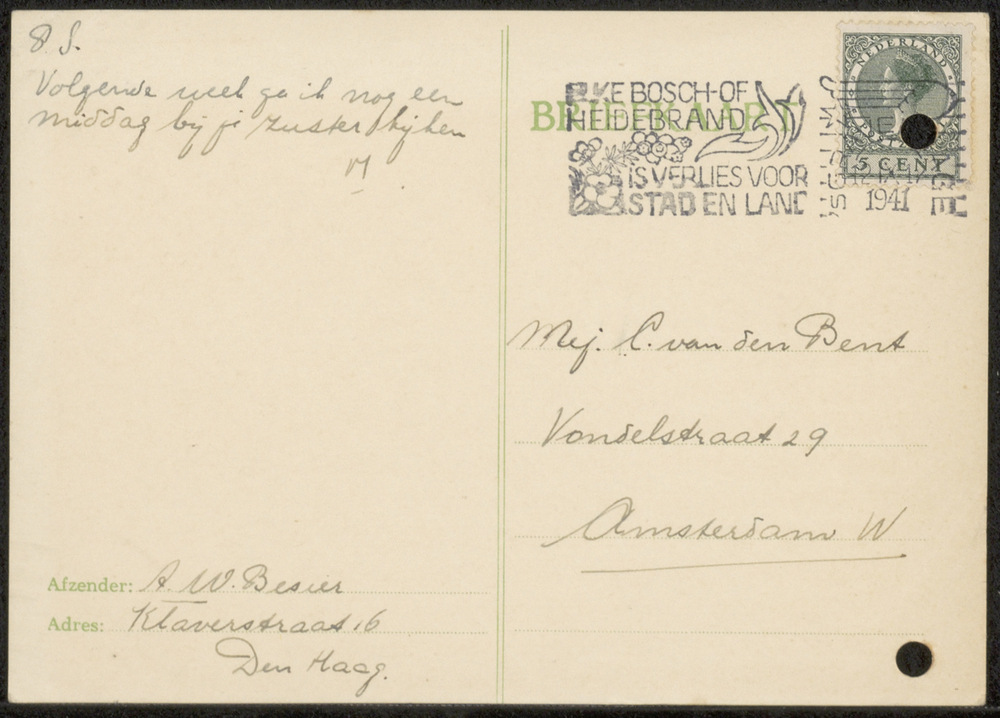 P.S.
Volgende week ga ik nog een
middag bij je zuster kijken
BRIEFKAART
ELKE BOSCH- OF
HEIDEBRAND
IS VERLIES VOOR
STAD EN LAND
NEDERLAND
5 CENT
1941
Mej. C. van den Bent
Vondelstraat 29
Amsterdam W
Afzender: A. W. Besier
Adres: Klaverstraat 16
Den Haag.